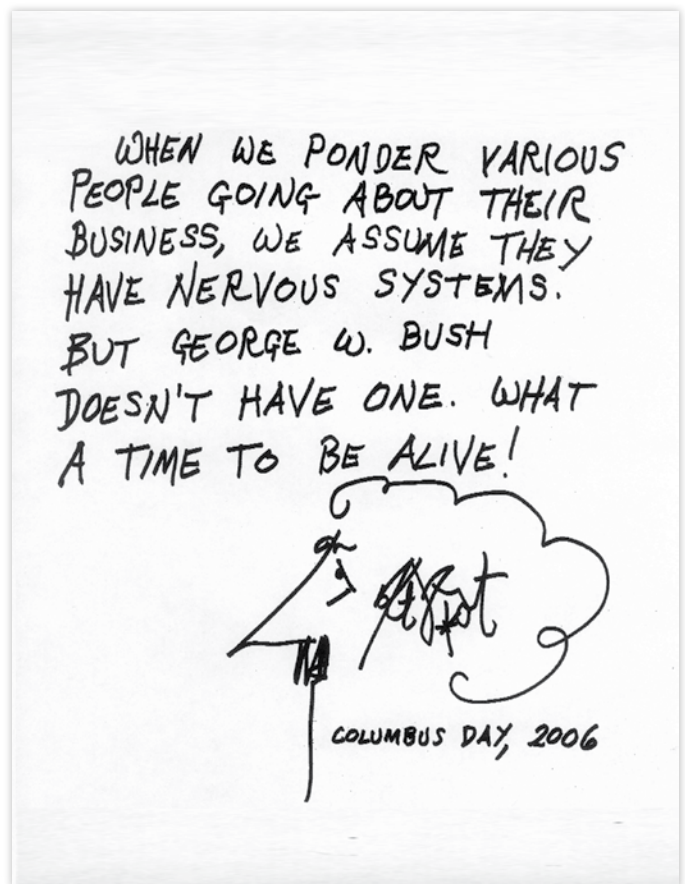 WHEN WE PONDER VARIOUS
PEOPLE GOING ABOUT THEIR
BUSINESS, WE ASSUME THEY
HAVE NERVOUS SYSTEMS.
BUT GEORGE W. BUSH
DOESN'T HAVE ONE. WHAT
A TIME TO BE ALIVE!
COLUMBUS DAY, 2006